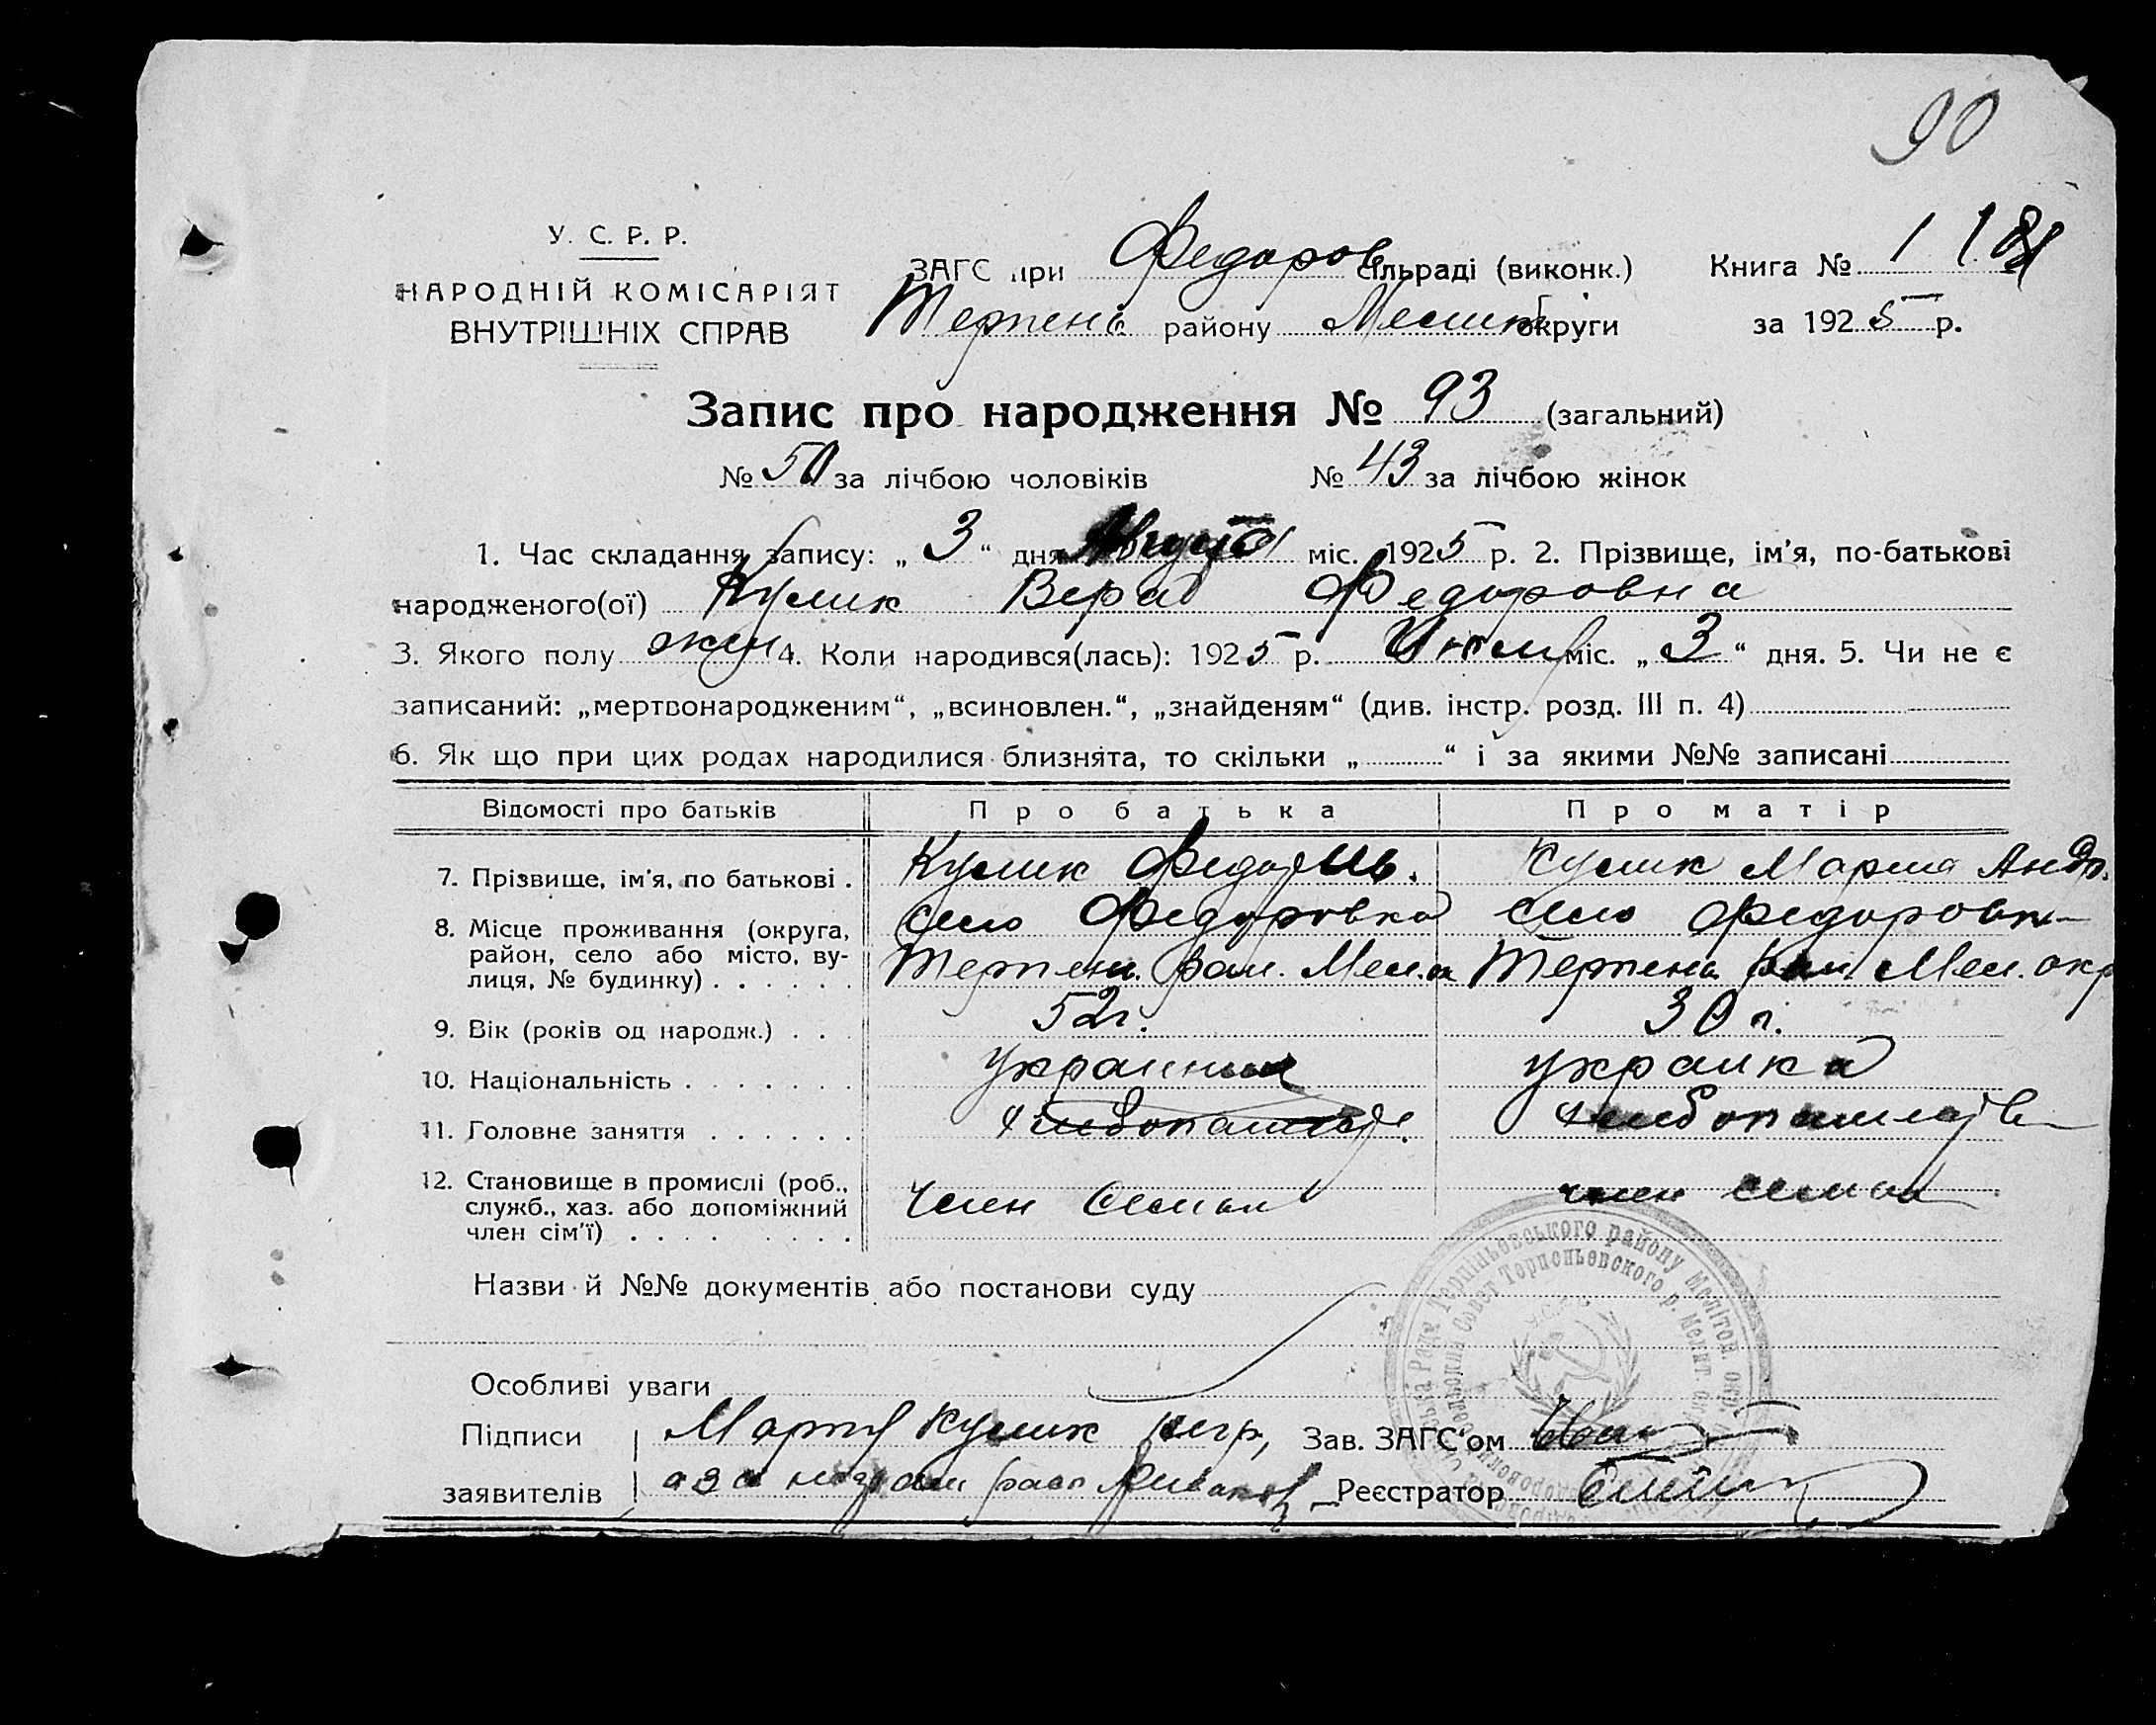 90
У. С. Р. Р.
НАРОДНІЙ КОМІСАРІЯТ
ВНУТРІШНІХ СПРАВ
ЗАГС при Федоров сільраді (виконк.) Книга № 1
Терпень району Мелит округи за 1925 р.
Запис про народження № 93 (загальний)
№ 50 за лічбою чоловіків № 43 за лічбою жінок
1. Час складання запису: „ 3 “ дня Августа міс. 1925 р. 2. Прізвище, ім'я, по-батькові
народженого(ої) Кулик Вера Федоровна
3. Якого полу жен 4. Коли народився(лась): 1925 р. Июля міс. „ 3 “ дня. 5. Чи не є
записаний: „мертвонародженим“, „всиновлен.“, „знайденям“ (див. інстр. розд. III п. 4)
6. Як що при цих родах народилися близнята, то скільки „ “ і за якими №№ записані
Відомості про батьків Про батька Про матір
7. Прізвище, ім'я, по батькові . Кулик Федор Ив. Кулик Мария Андр.
8. Місце проживання (округа, село Федоровка село Федоровк
район, село або місто, ву- Терпен. рай. Мел. Терпень рай Мел. окр
лиця, № будинку) . . . . . .
9. Вік (років од народж.) . . . 52 г. 30 л.
10. Національність . . . . . . . украинец украинка
11. Головне заняття . . . . . . хлебопаш хлебопаш
12. Становище в промислі (роб., член семьи член семьи
служб., хаз. або допоміжний
член сім'ї) . . . . . . . .
Назви й №№ документів або постанови суду
Особливі уваги
Підписи Мария Кулик негр, Зав. ЗАГС'ом
заявителів аза неграм расп Реєстратор
Терпіньовського району Мелітоп. окр.
Терпеньевского р. Мелит. о